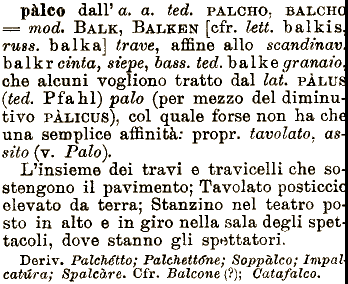 pàlco dall' a. a. ted. PALCHO, BALCHO
= mod. BALK, BALKEN [cfr. lett. balkis,
russ. balka] trave, affine allo scandinav.
balkr cinta, siepe, bass. ted. balke granaio,
che alcuni vogliono tratto dal lat. PÀLUS
(ted. Pfahl) palo (per mezzo del diminu-
tivo PÀLICUS), col quale forse non ha che
una semplice affinità: propr. tavolato, as-
sito (v. Palo).
L'insieme dei travi e travicelli che so-
stengono il pavimento; Tavolato posticcio
elevato da terra; Stanzino nel teatro po-
sto in alto e in giro nella sala degli spet-
tacoli, dove stanno gli spettatori.
Deriv. Palchétto; Palchettóne; Soppàlco; Impal-
catúra; Spalcàre. Cfr. Balcone (?); Catafalco.